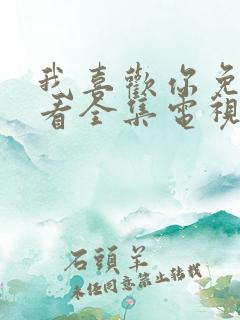 我喜歡你免
看全集電視
石頭羊
未经同意禁止转载